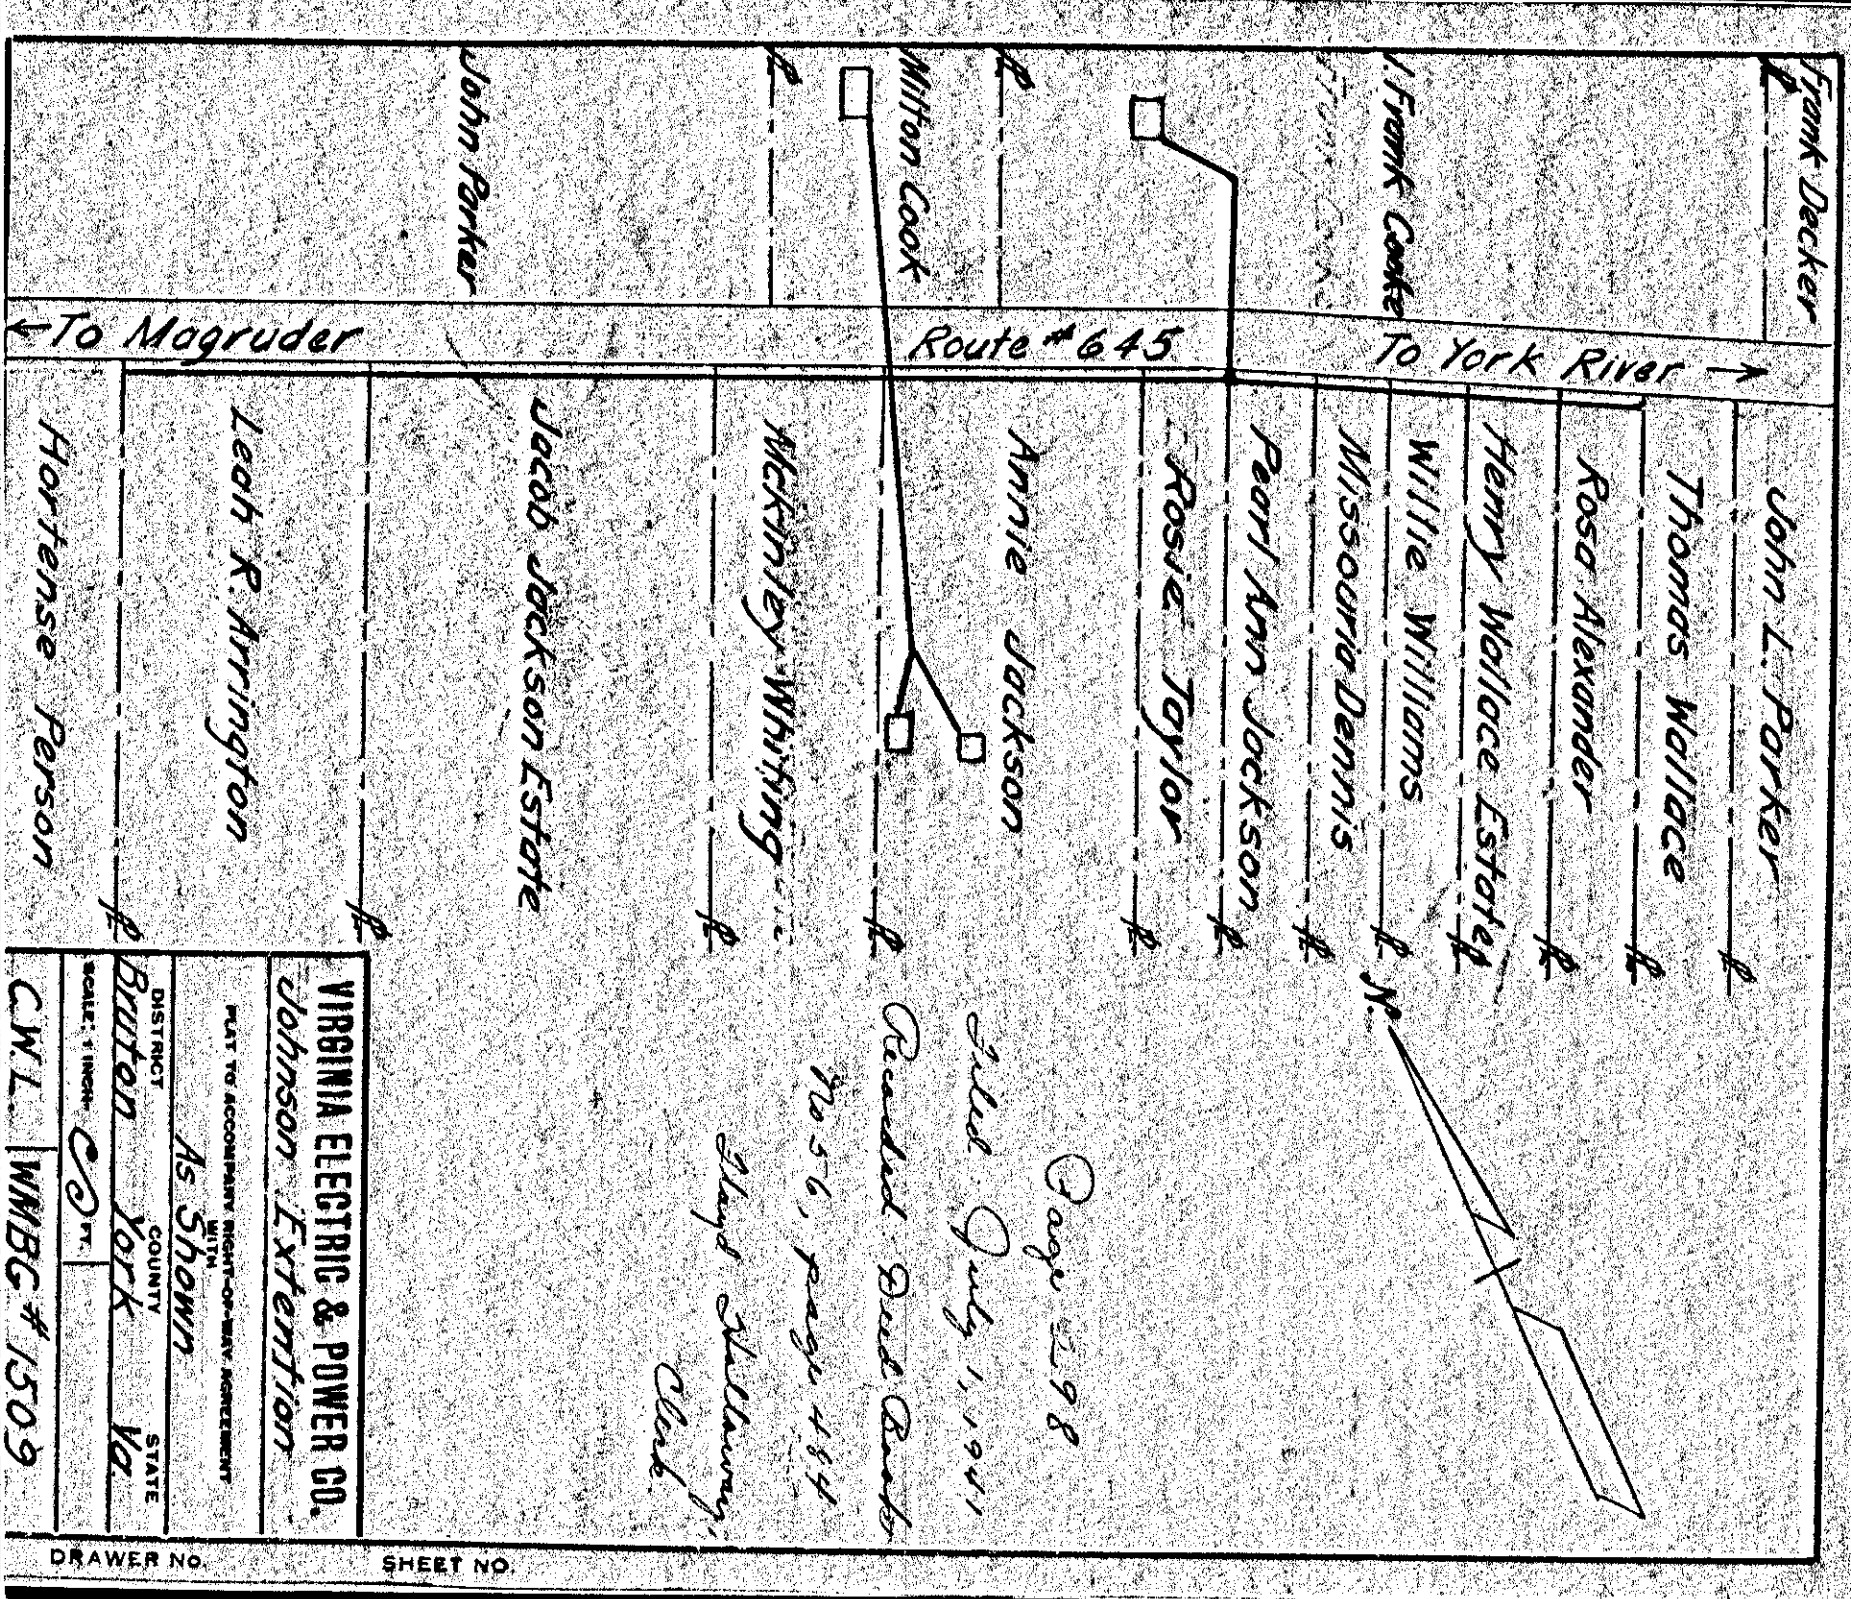 Frank Decker
J. Frank Cooke
Milton Cook
John Parker
← To Magruder
Route #645
To York River →
John L. Parker
Thomas Wallace
Rosa Alexander
Henry Wallace Estate
Willie Williams
Missouria Dennis
Pearl Ann Jackson
Rosie Taylor
Annie Jackson
McKinley Whiting
Jacob Jackson Estate
Leah R. Arrington
Hortense Person
N.
Page 298
Filed July 1, 1941
Recorded Deed Book
No 56, page 484
Floyd Holloway,
Clerk
VIRGINIA ELECTRIC & POWER CO.
Johnson Extention
PLAT TO ACCOMPANY RIGHT-OF-WAY AGREEMENT
WITH
As Shown
DISTRICT COUNTY STATE
Bruton York Va.
SCALE: 1 INCH= FT.
C.W.L. WMBG # 1509
DRAWER NO.
SHEET NO.